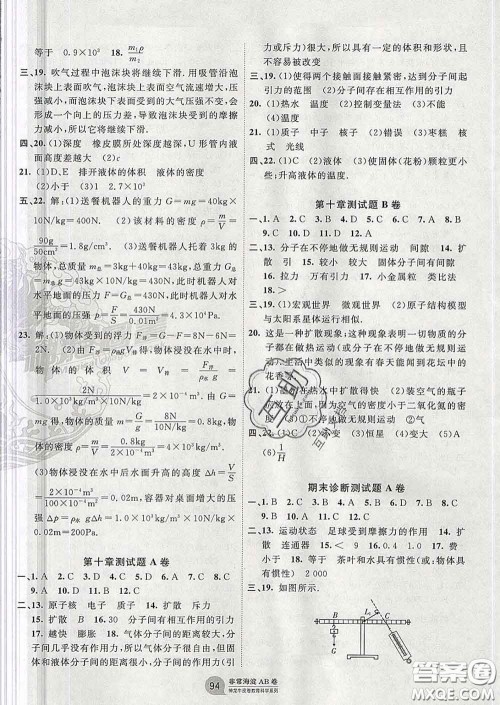 等于 0.9×10³ 18.
三、19. 吹气过程中泡沫块将继续下滑. 用吸管沿泡
沫块上表面吹气，泡沫块上表面空气流速增大，压
强减小，而泡沫块下表面受到的大气压强不变，会
形成一个向上的压力差，导致泡沫块受到的摩擦
力减小，所以它将继续下滑.
四、20. (1)深度 橡皮膜所处深度越深，U形管内液
面高度差越大 (2)c
21. (1)D、E 排开液体的体积 液体的密度
(2)小于 (3)1 2.7×10³
五、22. (1)送餐机器人的重力 G=mg=40kg×
10N/kg=400N. (2)该材料的密度 ρ=m/V=
90g/50cm³=1.8g/cm³. (3)送餐机器人托着3kg的
物体，总质量m总=3kg+40kg=43kg，总重力G总
=m总g=43kg×10N/kg=430N，此时机器人对水
平地面的压力F=G总=430N，此时机器人对水
平地面的压强p=F/S=430N/0.01m²=4.3×10⁴Pa.
23. (1)物体受到的浮力 F浮=G-F=8N-6N=
2N. (2)由 F浮=ρ水gV排得，物体浸没在水中时，
物体的体积 V=V排=F浮/ρ水g=
2N/1.0×10³kg/m³×10N/kg=2×10⁻⁴m³. 由 G=
mg得，物体的质量 m=G/g=8N/10N/kg=0.8kg，物
体的密度 ρ=m/V=0.8kg/2×10⁻⁴m³=4×10³kg/m³.
(3)物体浸没在水中后水面升高的高度 Δh=V/S
=2×10⁻⁴m³/1×10⁻²m²=0.02m，容器底部增大的压强
Δp=ρ水gΔh=1.0×10³kg/m³×10N/kg×
0.02m=200Pa.
第十章测试题A卷
一、1. A 2. C 3. D 4. C 5. D 6. A 7. D 8. A
9. B 10. D 11. C 12. C
二、13. 原子核 电子 质子 14. 扩散 斥力
15. 扩散 B 16. 30 分子间有相互作用的引力
17. 越快 膨胀 18. 气体分子间的距离较大，分
子间几乎没有作用力，有很大的可压缩性，而液体
和固体分子间的距离很小，分子间作用力(引
力或斥力)很大，所以具有不易被压缩性，
固体有一定的体积和形状，且
有流动性.
三、19. (1)使得两个接触面接触紧密，达到分子间起
引力的范围 (2)分子间存在相互作用的引力
20. (1)热水 温度 (2)控制变量法 (3)不可以
(4)温度
21. (1)质子 中子 核子 (2)错误 (3)枣糕 核式
式 光线
四、22. (1)温度 (2)液体 (3)使固体(花粉)颗粒更小
些；升高液体的温度.
第十章测试题B卷
一、1. A 2. C 3. C 4. D 5. D 6. C 7. A 8. B
9. B 10. B 11. C 12. C
二、13. 分子在不停地做无规则运动 间隙 14. 扩
散 引 15. 扩散 不同 分子间有间隙
16. 拉力 万有引力 17. 小金属粒 类比法
18. >
三、19. (1)宏观世界 微观世界 (2)原子结构模型
与太阳系星体运行相似.
20. 这是一种扩散现象，这种现象表明一切物质的
分子都在不停地做无规则运
动. 生活中类似的现象有春天能闻到花坛中的
花香等
21. (1)热水在热水中扩散得快 (2)装空气的瓶子
密度小于二氧化氮的密
度 (3)①不停地做无规则运动 ②气
四、22. (1)① (2)变 (3)恒星 (4)变大 (5)A
(6)1/H
期末诊断测试题A卷
一、1. C 2. B 3. C 4. A 5. D 6. B 7. C 8. A
9. D 10. D 11. A 12. A
二、13. 运动状态 足球受到摩擦力的作用 14. 扩
散 连通器 15. < 9 16. 0.4 1.0 17. 费力
小 18. = 等于 茶叶和水具有惯性(或；物体
具有惯性) 2 000
三、19. 如图所示.
94
非常海淀AB卷
神龙牛皮卷教育科学系列
MXQE.COM